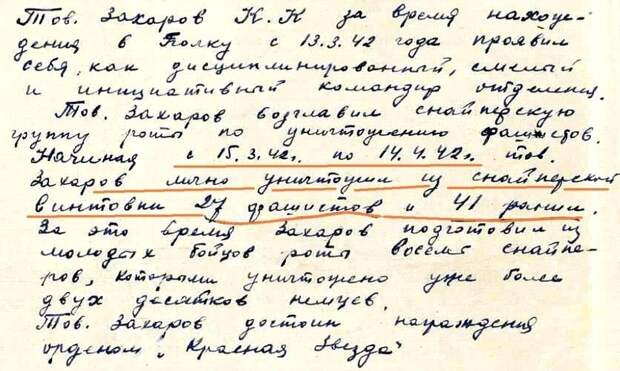 Тов. Захаров К. К за время нахож-
дения в Полку с 13.3.42 года проявил
себя, как дисциплинированный, смелый
и инициативный командир отделения.
Тов. Захаров возглавил снайперскую
группу роты по уничтожению фашистов.
Начиная с 15.3.42г. по 14.4.42г. тов.
Захаров лично уничтожил из снайперской
винтовки 27 фашистов и 41 ранил.
За это время Захаров подготовил из
молодых бойцов роты восемь снайпе-
ров, которыми уничтожено уже более
двух десятков немцев.
Тов. Захаров достоин награждения
орденом „Красная Звезда"